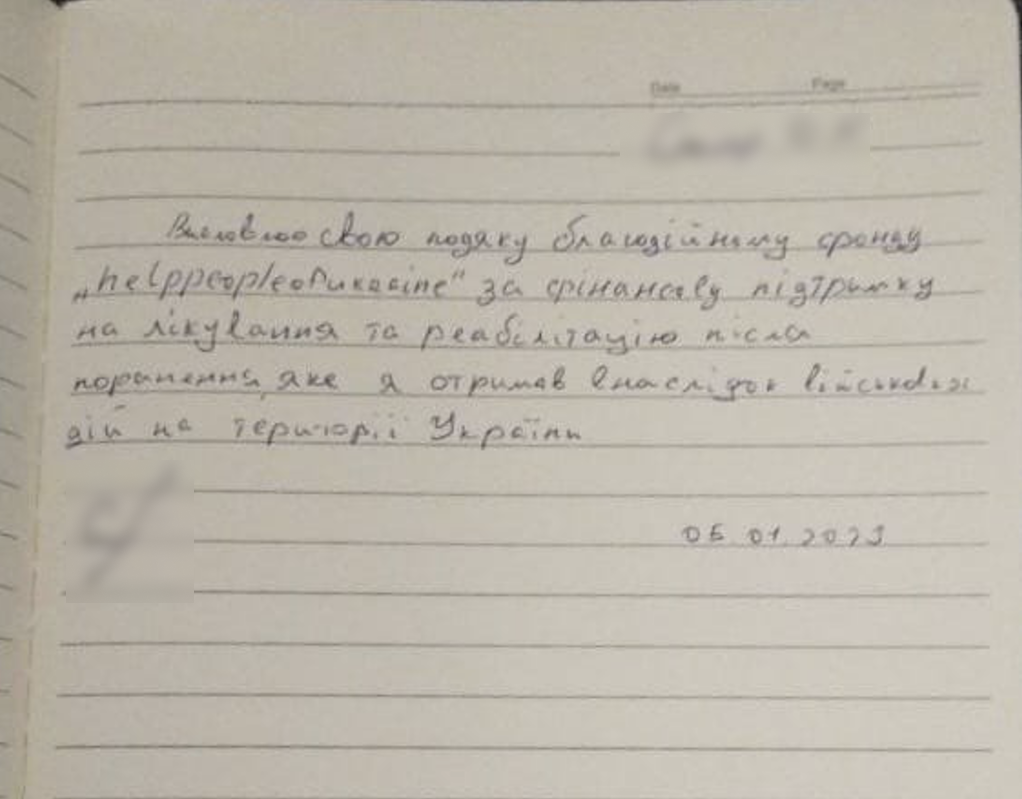 Date Page
Висловлюю свою подяку благодійному фонду
„helppeopleofukraine“ за фінансову підтримку
на лікування та реабілітацію після
поранення, яке я отримав внаслідок військових
дій на території України
05.01.2023